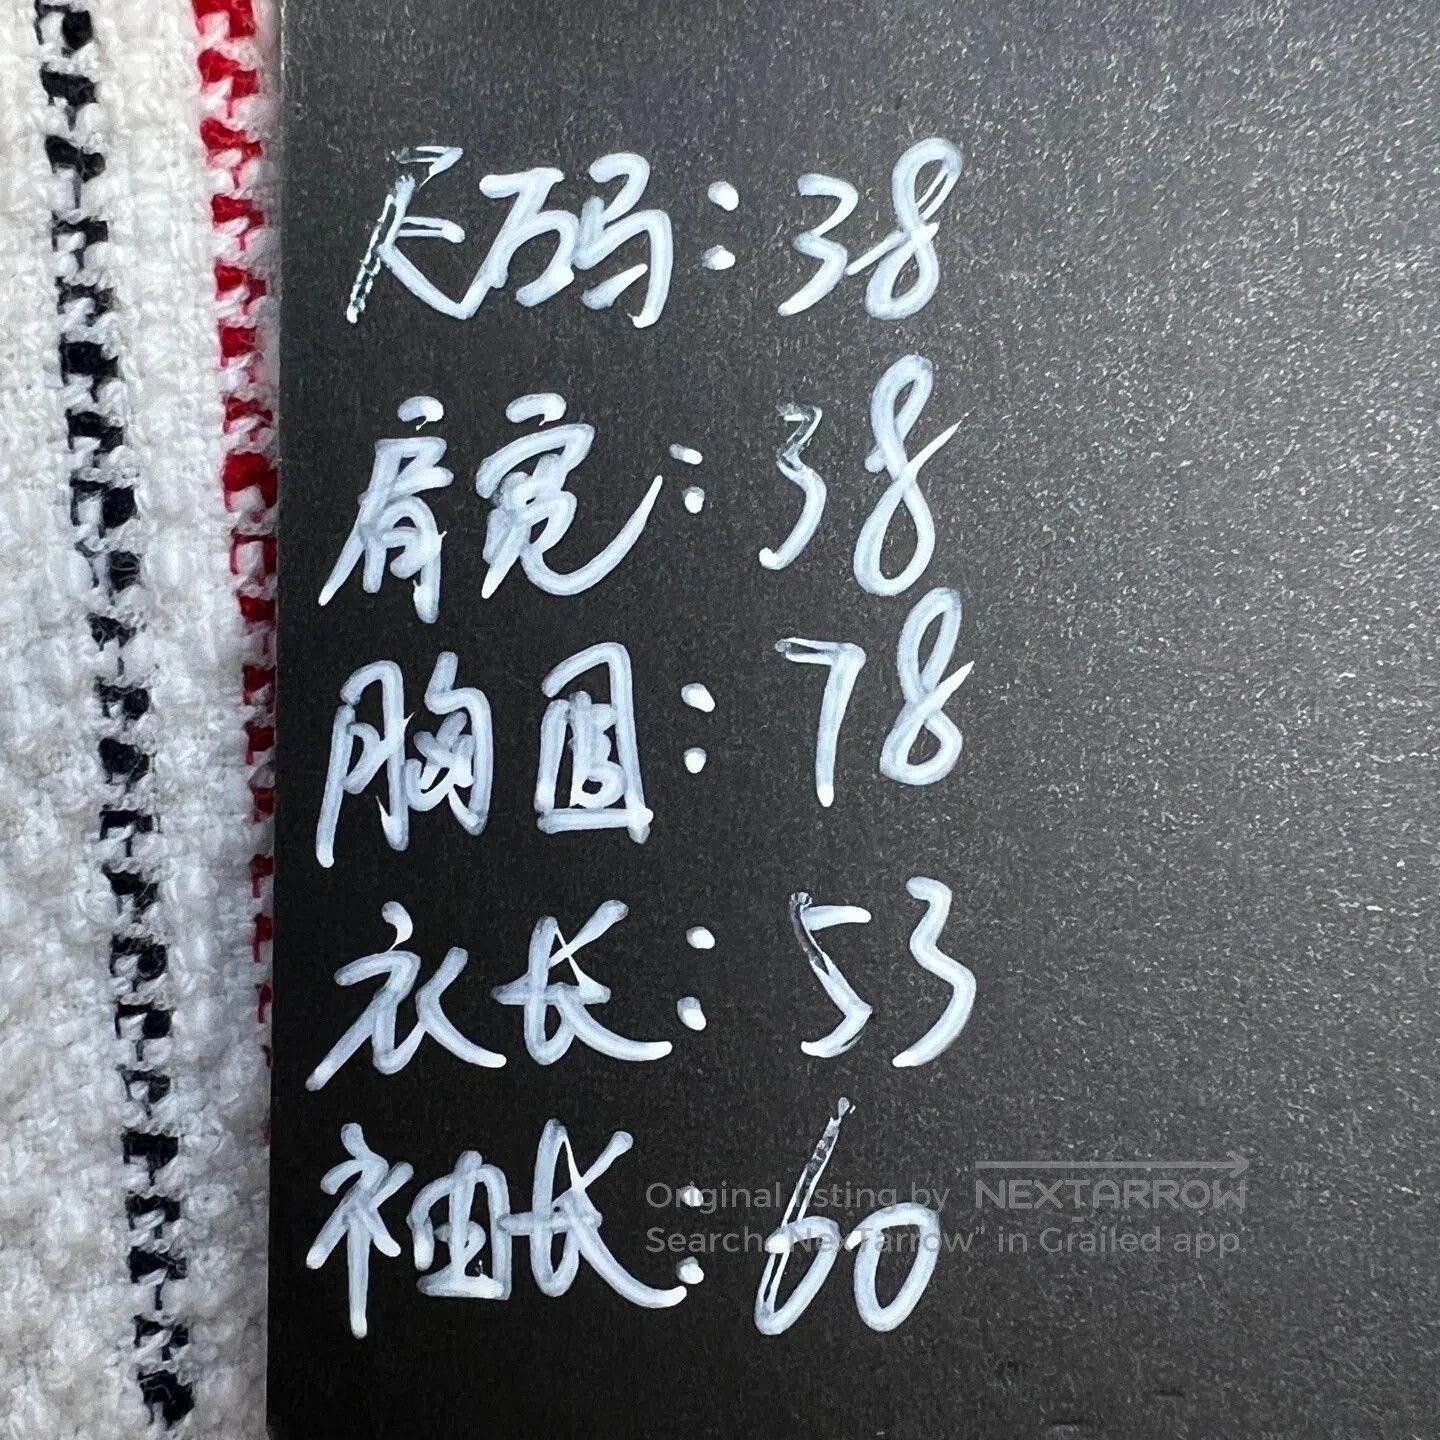 尺码:38
肩宽:38
胸围:78
衣长:53
袖长:60
Original listing by NEXTARROW
Search "NexTarrow" in Grailed app